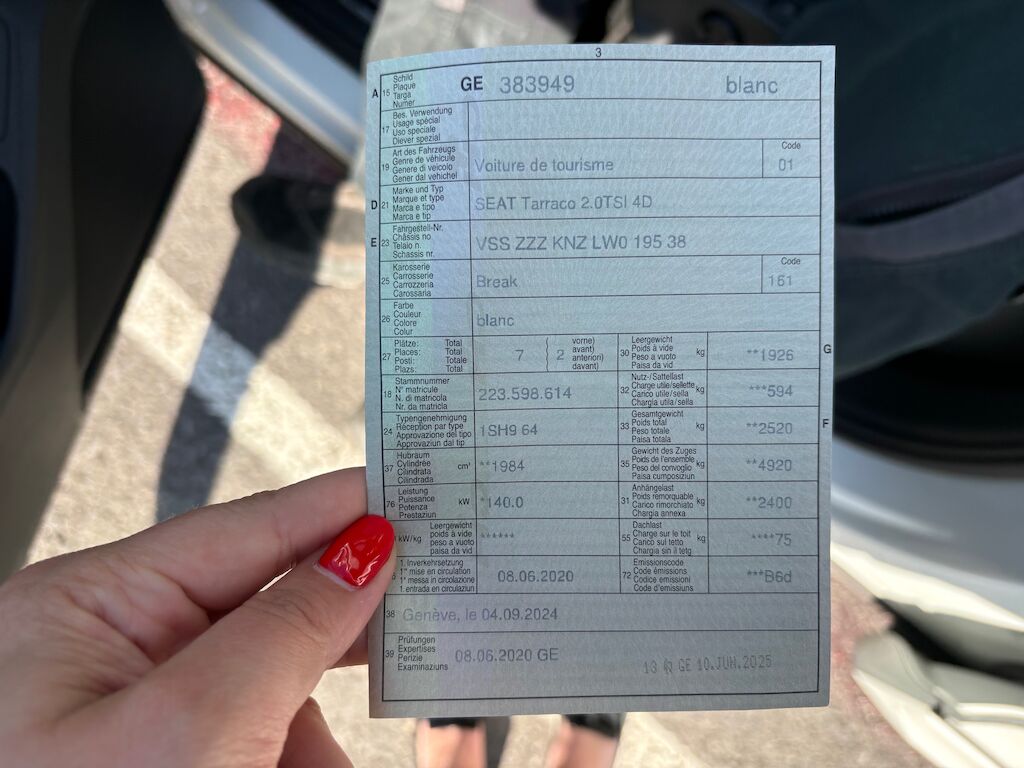 3
A 15 Schild
Plaque
Targa
Numer
GE 383949 blanc
17 Bes. Verwendung
Usage spécial
Uso speciale
Diever spezial
19 Art des Fahrzeugs
Genre de véhicule
Genere di veicolo
Gener dal vehichel
Voiture de tourisme
Code
01
D 21 Marke und Typ
Marque et type
Marca e tipo
Marca e tip
SEAT Tarraco 2.0TSI 4D
E 23 Fahrgestell-Nr.
Châssis no
Telaio n.
Schassis nr.
VSS ZZZ KNZ LW0 195 38
25 Karosserie
Carrosserie
Carrozzeria
Carossaria
Break
Code
161
26 Farbe
Couleur
Colore
Colur
blanc
27 Plätze: Total
Places: Total
Posti: Totale
Plazs: Total
7 2 vorne)
avant)
anteriori)
davant)
30 Leergewicht
Poids à vide
Peso a vuoto
Paisa da vid
kg
**1926
G
18 Stammnummer
N° matricule
N. di matricola
Nr. da matricla
223.598.614
32 Nutz-/Sattellast
Charge utile/sellette
Carico utile/sella
Chargia utila/sella
kg
***594
24 Typengenehmigung
Réception par type
Approvazione del tipo
Approvaziun dal tip
1SH9 64
33 Gesamtgewicht
Poids total
Peso totale
Paisa totala
kg
**2520
F
37 Hubraum
Cylindrée
Cilindrata
Cilindrada
cm³
**1984
35 Gewicht des Zuges
Poids de l'ensemble
Peso del convoglio
Paisa cumposiziun
kg
**4920
76 Leistung
Puissance
Potenza
Prestaziun
kW
*140.0
31 Anhängelast
Poids remorquable
Carico rimorchiato
Chargia annexa
kg
**2400
kW/kg Leergewicht
poids à vide
peso a vuoto
paisa da vid
******
55 Dachlast
Charge sur le toit
Carico sul tetto
Chargia sin il tetg
kg
****75
1. Inverkehrsetzung
1re mise en circulation
1a messa in circolazione
1. entrada en circulaziun
08.06.2020
72 Emissionscode
Code émissions
Codice emissioni
Code d'emissiuns
***B6d
38 Genève, le 04.09.2024
39 Prüfungen
Expertises
Perizie
Examinaziuns
08.06.2020 GE
13 GE 10.JUN.2025